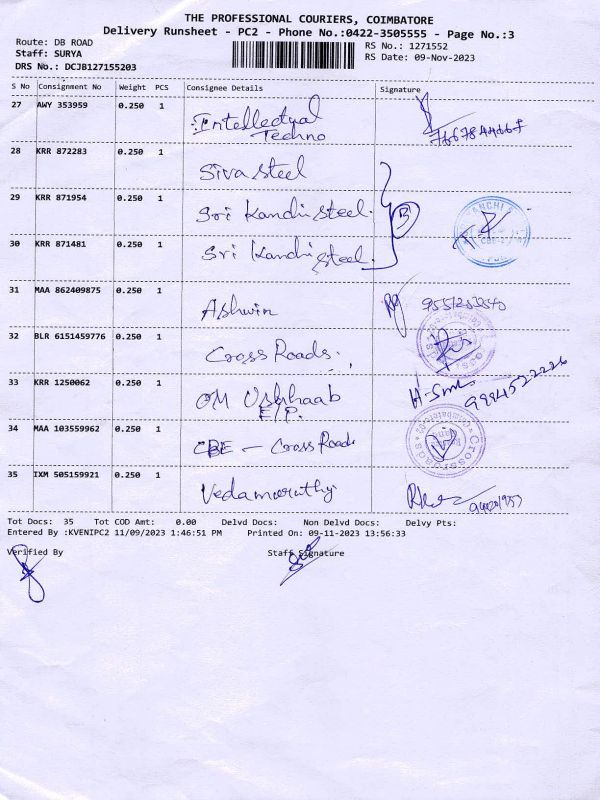 THE PROFESSIONAL COURIERS, COIMBATORE
Delivery Runsheet - PC2 - Phone No.:0422-3505555 - Page No.:3
Route: DB ROAD
RS No.: 1271552
Staff: SURYA
RS Date: 09-Nov-2023
DRS No.: DCJB127155203
S No Consignment No Weight PCS Consignee Details Signature
27 AWY 353959 0.250 1 Intellectual
Techno
28 KRR 872283 0.250 1 Siva Steel
29 KRR 871954 0.250 1 Sri Kandhi Steel.
30 KRR 871481 0.250 1 Sri Kandhi Steel
31 MAA 862409875 0.250 1 Ashwin
32 BLR 6151459776 0.250 1 Cross Roads.
33 KRR 1250062 0.250 1 OM
E/P.
34 MAA 103559962 0.250 1 CBE - Cross Roads
35 IXM 505159921 0.250 1 Vedamoorthy
Tot Docs: 35 Tot COD Amt: 0.00 Delvd Docs: Non Delvd Docs: Delvy Pts:
Entered By :KVENIPC2 11/09/2023 1:46:51 PM Printed On: 09-11-2023 13:56:33
Verified By Staff Signature